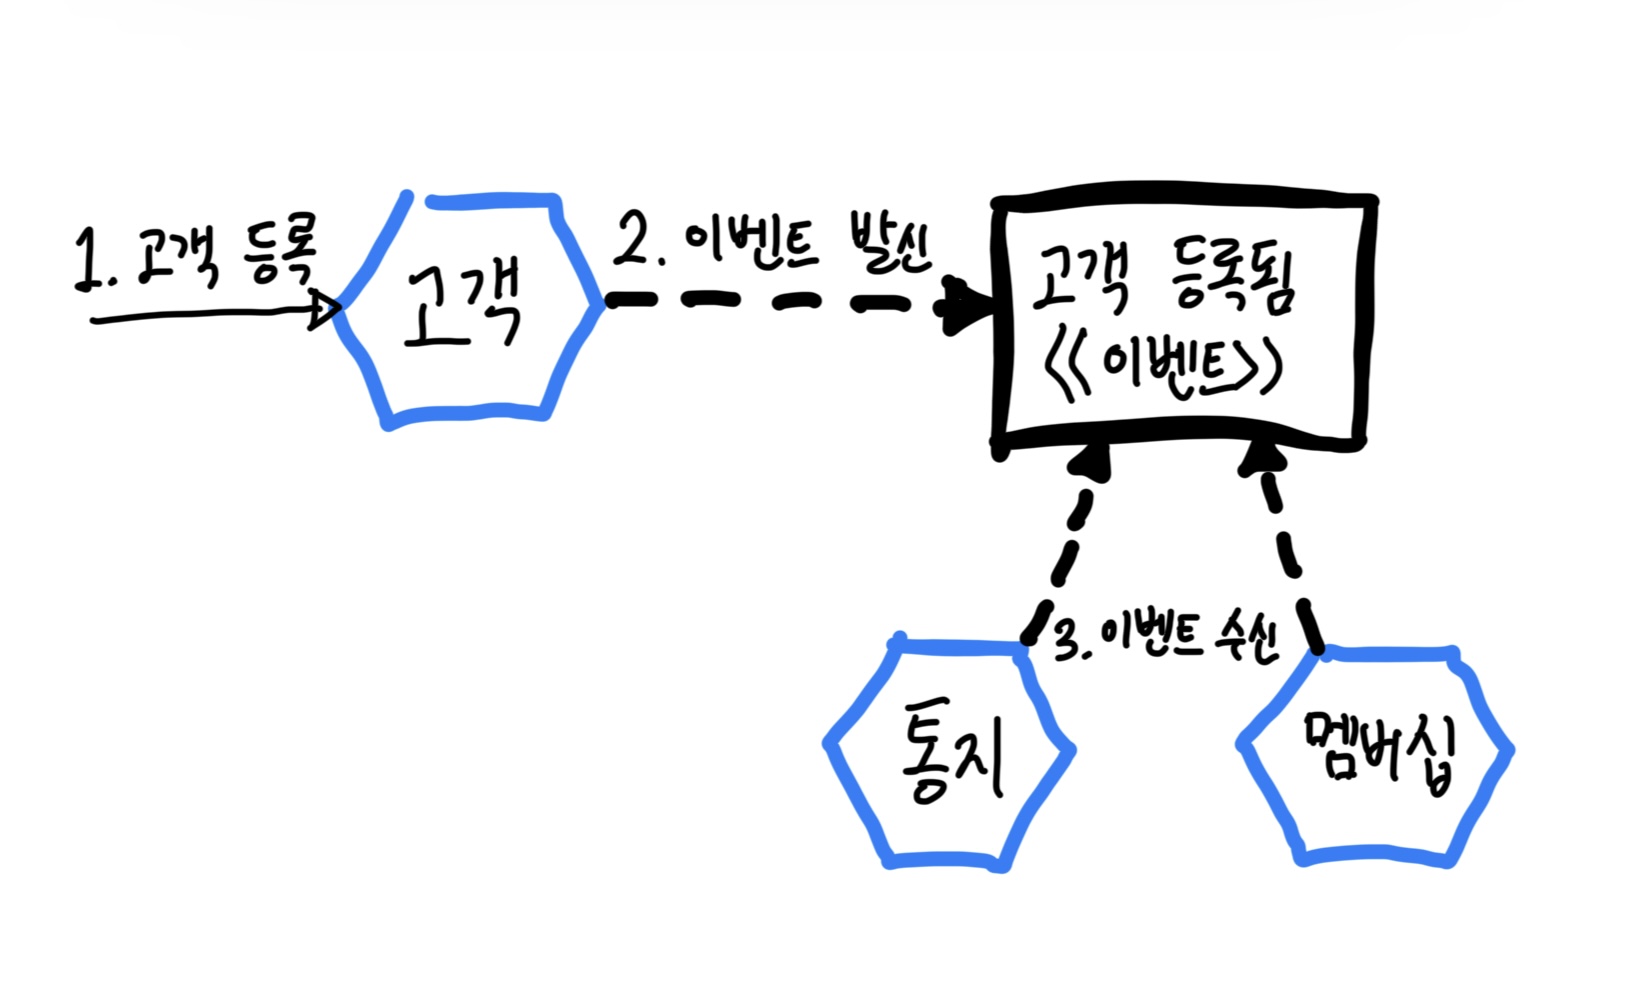 1. 고객 등록
고객
2. 이벤트 발신
고객 등록됨
<<이벤트>>
3. 이벤트 수신
통지
멤버십